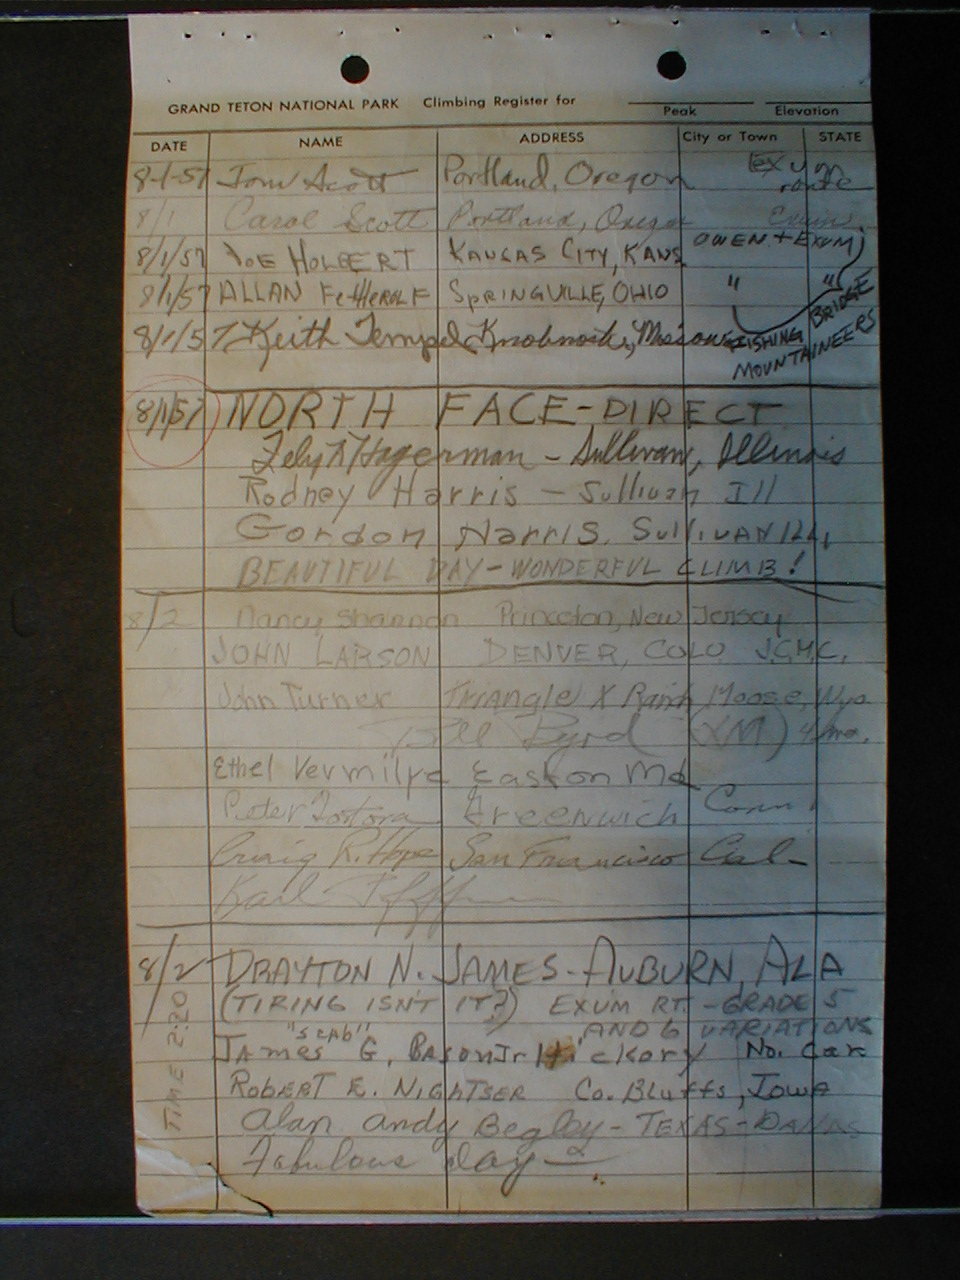 GRAND TETON NATIONAL PARK Climbing Register for
Peak Elevation
DATE NAME ADDRESS City or Town STATE
8-1-57 Tom Scott Portland, Oregon Exum route
8/1 Carol Scott Portland, Oregon Exum
8/1/57 JOE HOLBERT KANSAS CITY, KANS OWEN + EXUM
8/1/57 ALLAN FetHEROLF SPRINGVILLE, OHIO " "
8/1/57 Keith Temple Knobnoster, Missouri FISHING BRIDGE
MOUNTAINEERS
8/1/57 NORTH FACE-DIRECT
Hagerman - Sullivan, Illinois
Rodney Harris - Sullivan Ill
Gordon Harris, SULLIVAN ILL,
BEAUTIFUL DAY - WONDERFUL CLIMB!
8/2 Nancy Shannon Princeton, New Jersey
JOHN LARSON DENVER, COLO J.G.M.C.
John Turner Triangle X Ranch Moose, Wyo.
Bill Byrd (XM)
Ethel Vermilye Easton Md
Peter Greenwich Conn
Craig R. Hope San Francisco Cal-
Karl
8/2 DRAYTON N. JAMES - AUBURN, ALA
(TIRING ISN'T IT?) EXUM RT. - GRADE 5
AND 6 VARIATIONS
"SCAB"
James G. Bason Jr Hickory No. Car
ROBERT E. NIGHTSER Co. Bluffs, Iowa
Alan Andy Begley - TEXAS - DALLAS
Fabulous day -
TIME 2:20